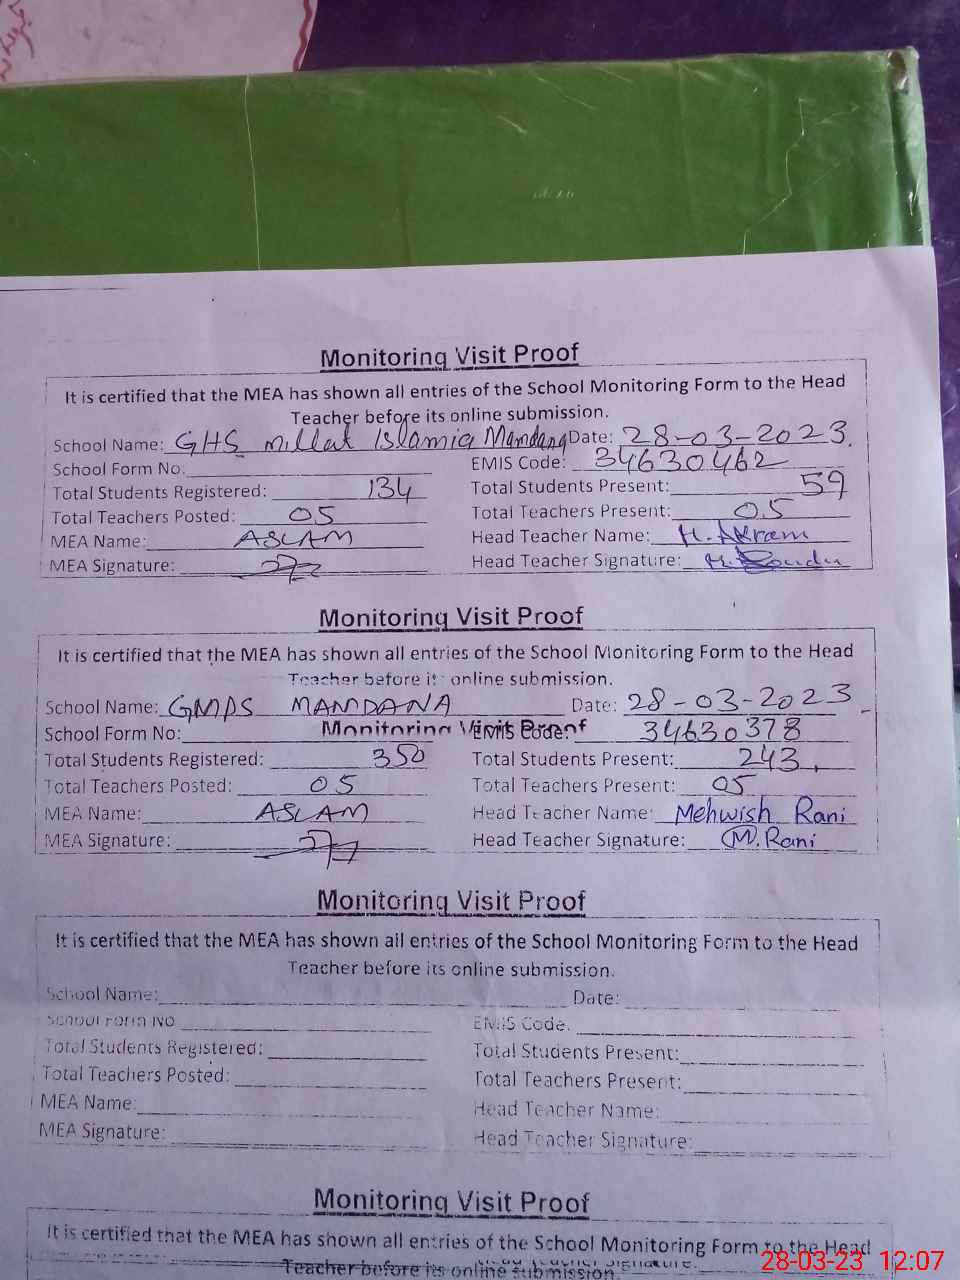 Monitoring Visit Proof
It is certified that the MEA has shown all entries of the School Monitoring Form to the Head
Teacher before its online submission.
School Name: GHS millat Islamia Mandana Date: 28-03-2023.
School Form No: EMIS Code: 34630462
Total Students Registered: 134 Total Students Present: 59
Total Teachers Posted: 05 Total Teachers Present: 05
MEA Name: ASLAM Head Teacher Name: H. AKram
MEA Signature: Head Teacher Signature:
Monitoring Visit Proof
It is certified that the MEA has shown all entries of the School Monitoring Form to the Head
Teacher before its online submission.
School Name: GMPS MANDANA Date: 28-03-2023
School Form No: Monitoring Visit Proof EMIS Code: 34630378
Total Students Registered: 350 Total Students Present: 243
Total Teachers Posted: 05 Total Teachers Present: 05
MEA Name: ASLAM Head Teacher Name: Mehwish Rani
MEA Signature: Head Teacher Signature: M. Rani
Monitoring Visit Proof
It is certified that the MEA has shown all entries of the School Monitoring Form to the Head
Teacher before its online submission.
School Name: Date:
School Form No EMIS Code:
Total Students Registered: Total Students Present:
Total Teachers Posted: Total Teachers Present:
MEA Name: Head Teacher Name:
MEA Signature: Head Teacher Signature:
Monitoring Visit Proof
It is certified that the MEA has shown all entries of the School Monitoring Form to the Head
Teacher before its online submission.
28-03-23 12:07